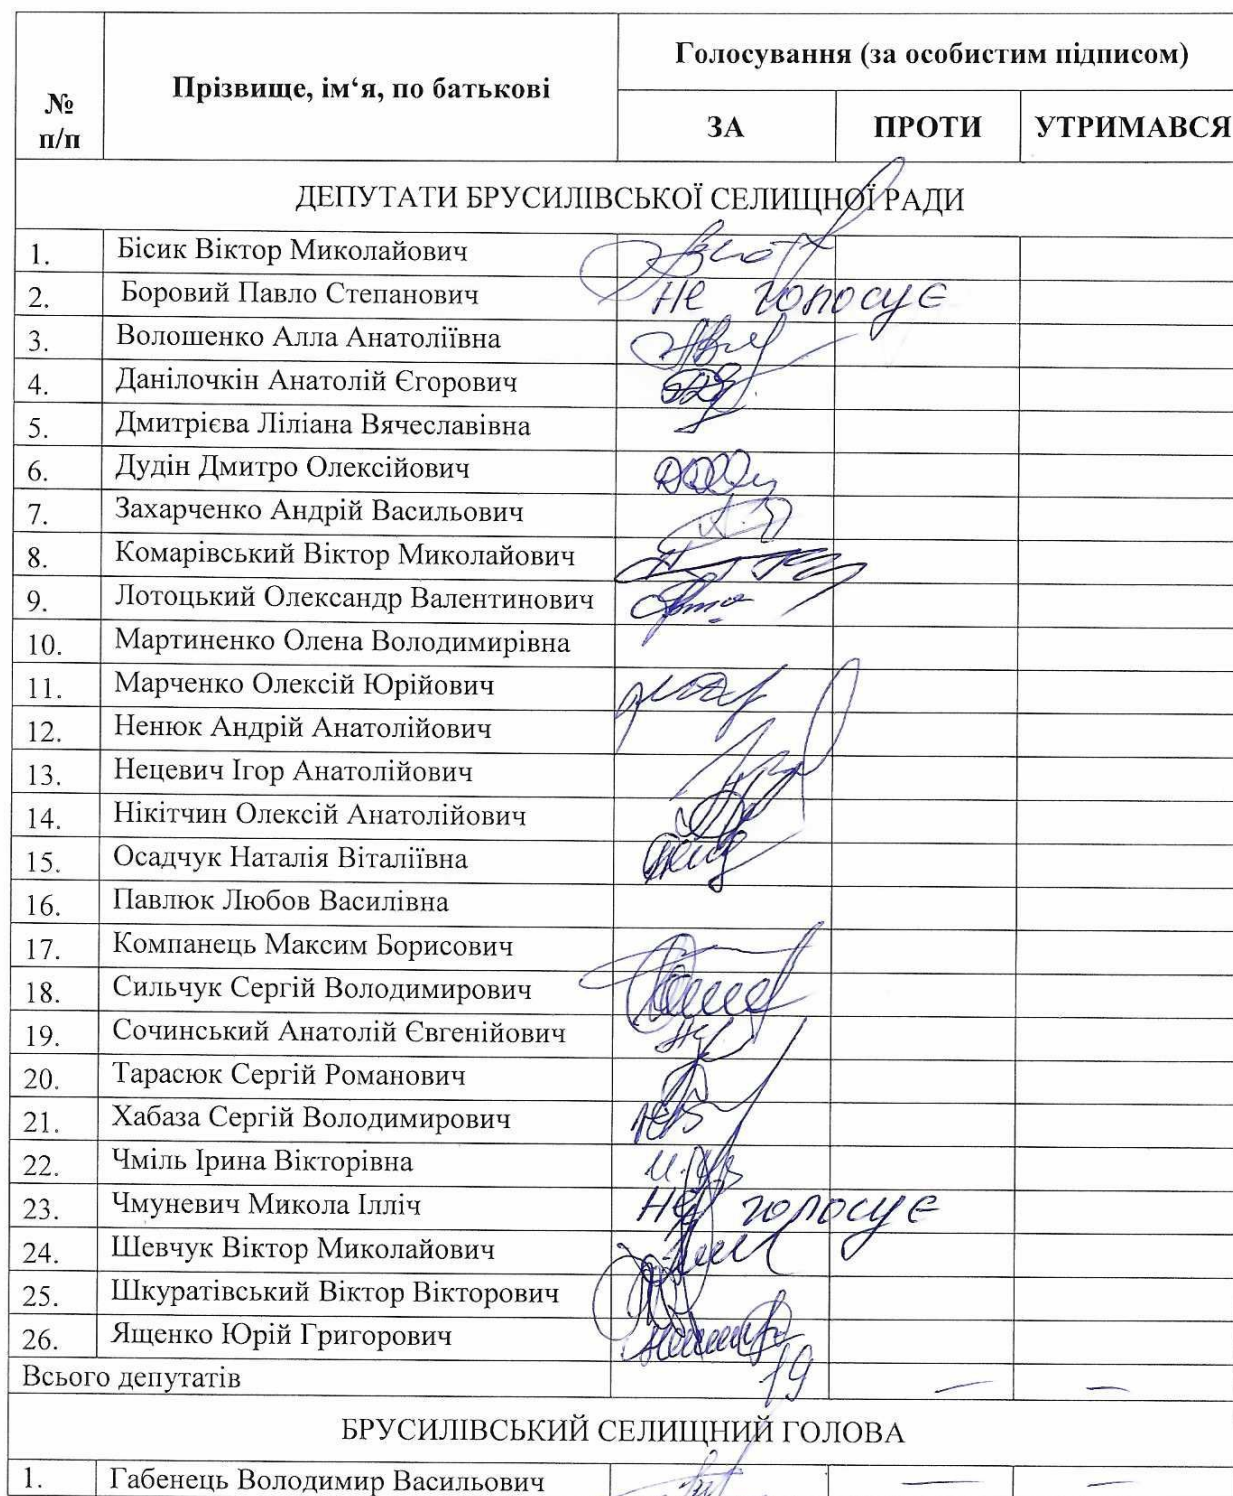 № п/п
Прізвище, ім‘я, по батькові
Голосування (за особистим підписом)
ЗА ПРОТИ УТРИМАВСЯ
ДЕПУТАТИ БРУСИЛІВСЬКОЇ СЕЛИЩНОЇ РАДИ
1. Бісик Віктор Миколайович
2. Боровий Павло Степанович не голосує
3. Волошенко Алла Анатоліївна
4. Данілочкін Анатолій Єгорович
5. Дмитрієва Ліліана Вячеславівна
6. Дудін Дмитро Олексійович
7. Захарченко Андрій Васильович
8. Комарівський Віктор Миколайович
9. Лотоцький Олександр Валентинович
10. Мартиненко Олена Володимирівна
11. Марченко Олексій Юрійович
12. Ненюк Андрій Анатолійович
13. Нецевич Ігор Анатолійович
14. Нікітчин Олексій Анатолійович
15. Осадчук Наталія Віталіївна
16. Павлюк Любов Василівна
17. Компанець Максим Борисович
18. Сильчук Сергій Володимирович
19. Сочинський Анатолій Євгенійович
20. Тарасюк Сергій Романович
21. Хабаза Сергій Володимирович
22. Чміль Ірина Вікторівна
23. Чмуневич Микола Ілліч не голосує
24. Шевчук Віктор Миколайович
25. Шкуратівський Віктор Вікторович
26. Ященко Юрій Григорович
Всього депутатів 19 — —
БРУСИЛІВСЬКИЙ СЕЛИЩНИЙ ГОЛОВА
1. Габенець Володимир Васильович — —